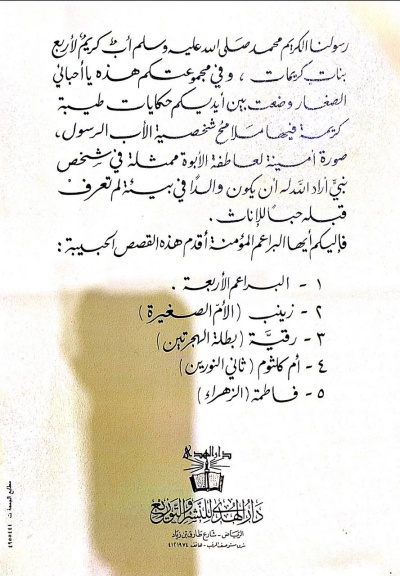 رسولنا الكريم محمد صلى الله عليه وسلم أبٌ كريمٌ لأربع
بنات كريمات ، وفي مجموعتكم هذه يا أحبائي
الصغار وضعت بين أيديكم حكايات طيبة
كريمة فيها ملامح شخصية الأب الرسول،
صورة أمينة لعاطفة الأبوة ممثلة في شخص
نبيّ أراد الله له أن يكون والدًا في بيئة لم تعرف
قبله حبا للإناث .
فإليكم أيها البراعم المؤمنة أقدم هذه القصص الحبيبة :
١ - البراعم الأربعة .
٢ - زينب (الأم الصغيرة)
٣ - رقيَّة (بطلة الهجرتين)
٤ - أم كلثوم (ثاني النورين)
٥ - فاطمة (الزهراء)
دار الهدى
دار الهدى للنشر والتوزيع
الرياض - شارع طارق بن زياد
هاتف ٤١٢١٩٧٤
مطابع الجمعة ت